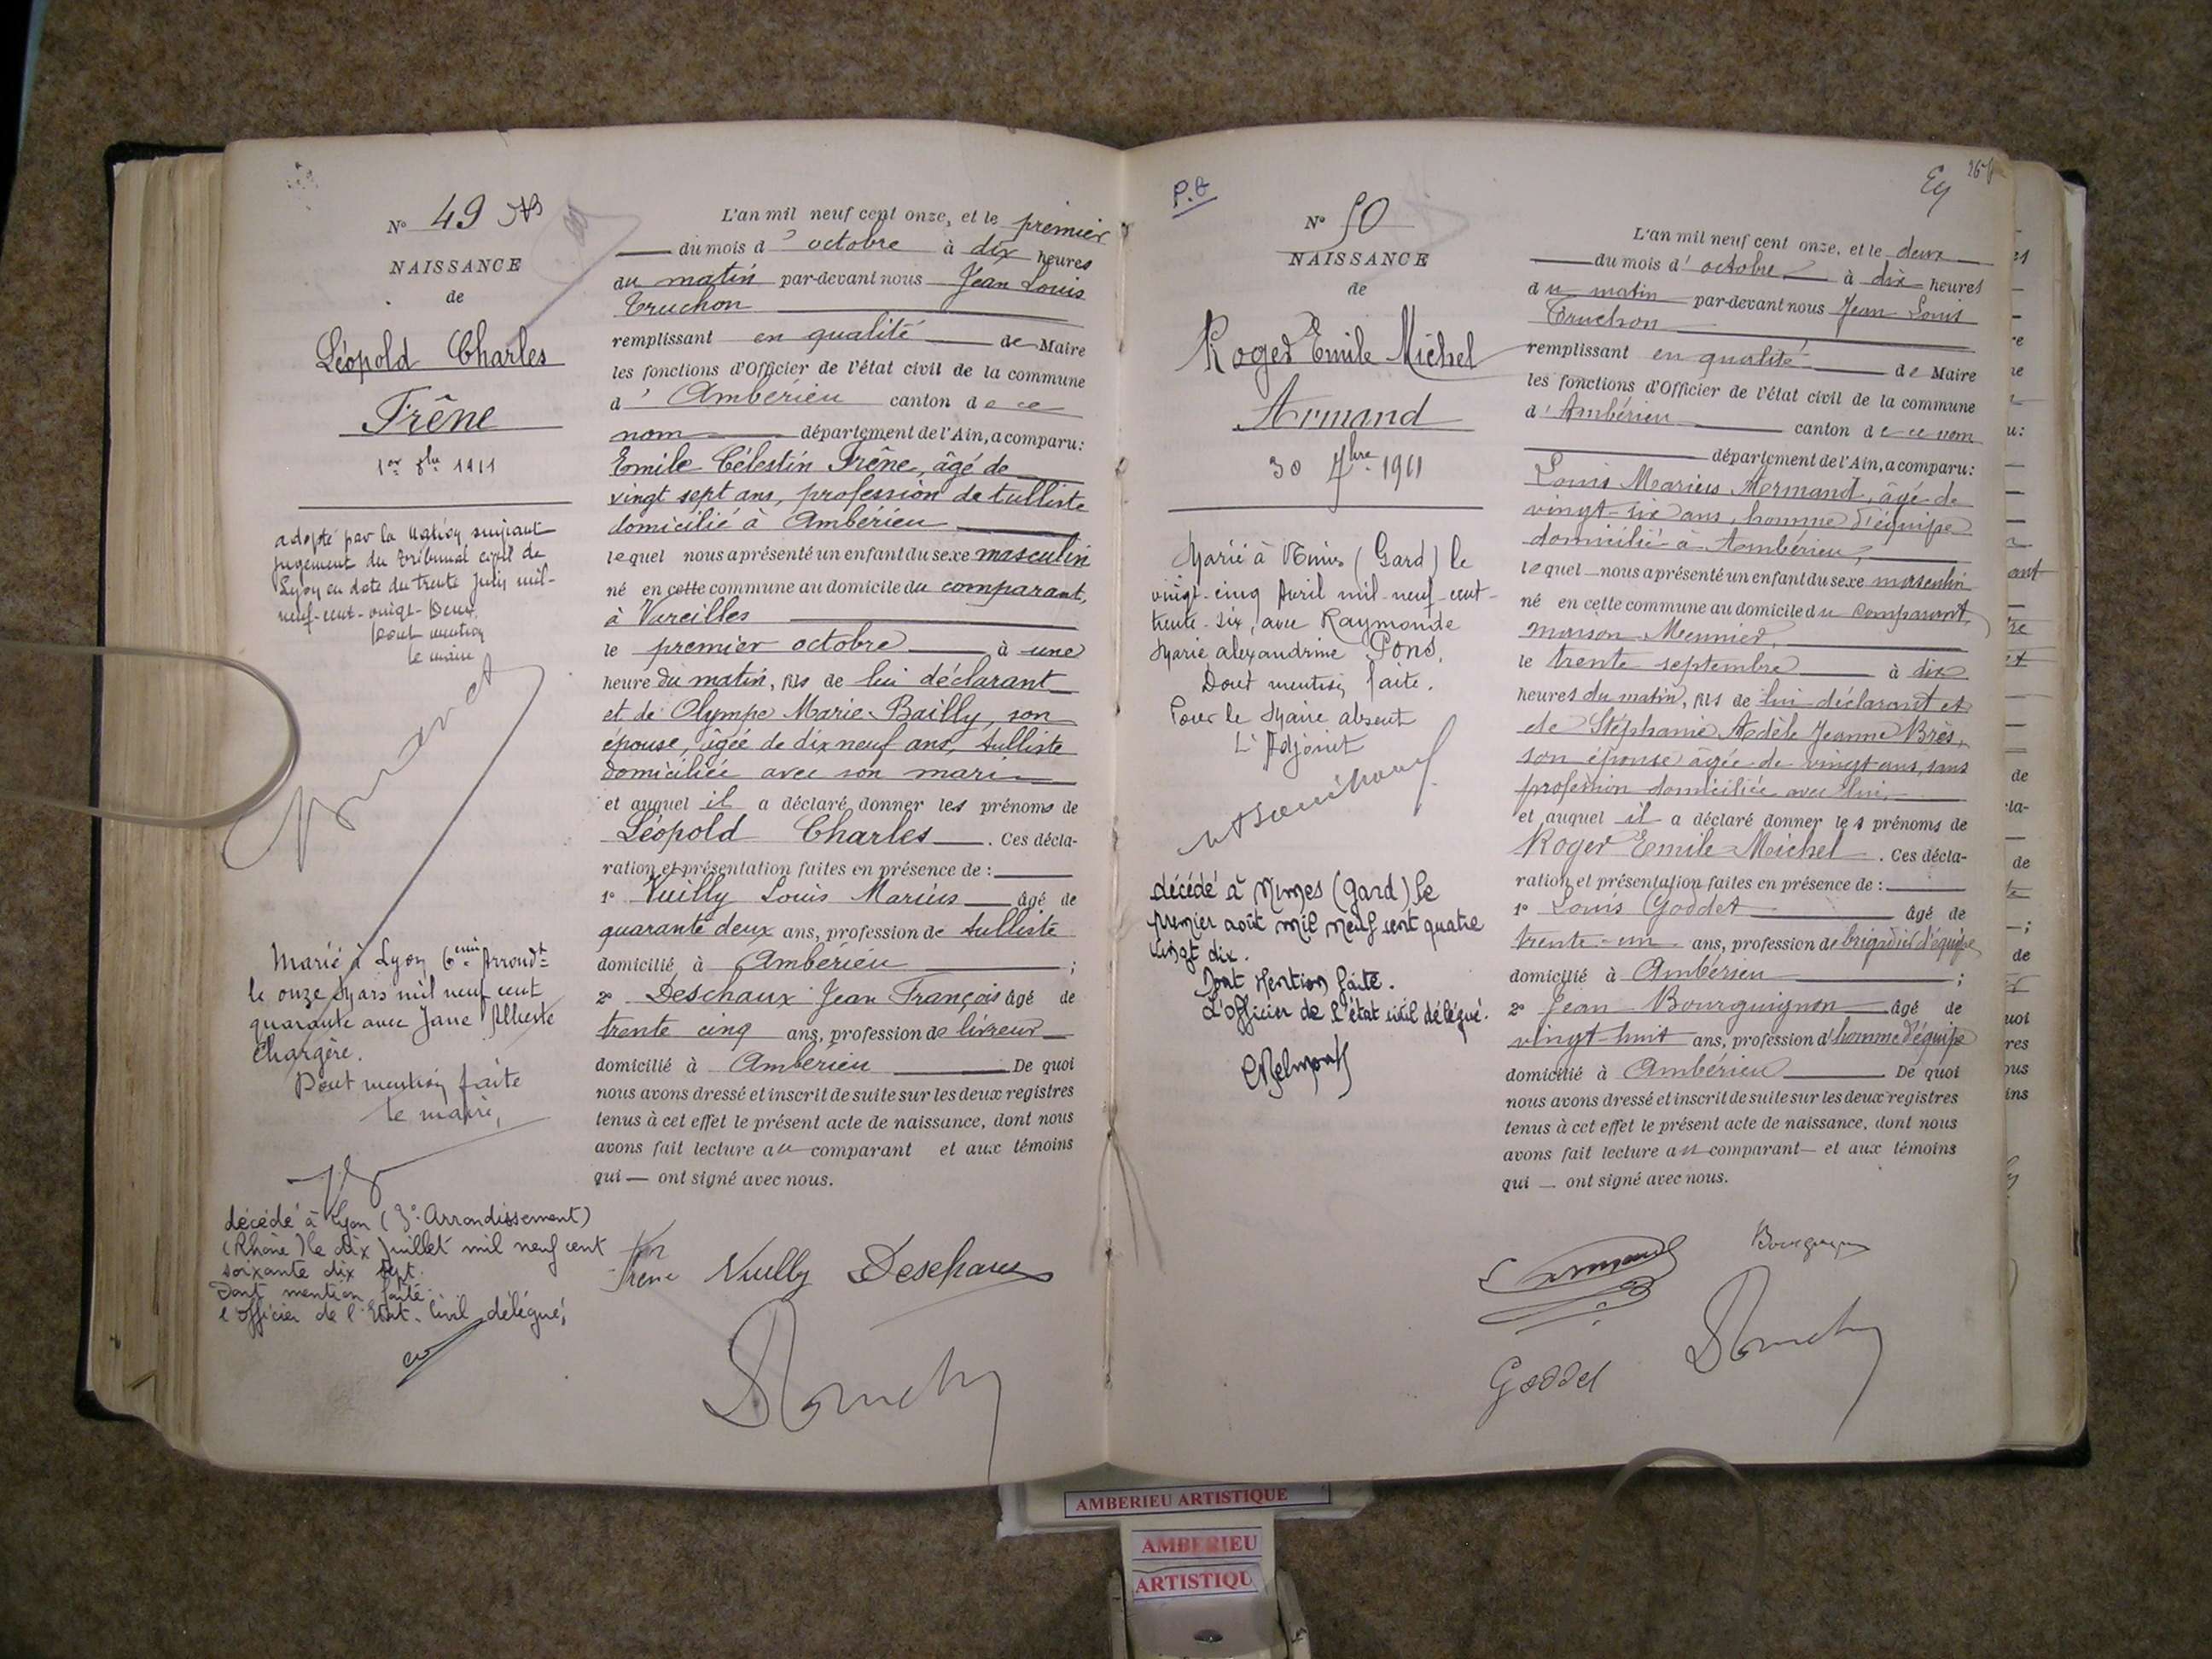 N° 49
NAISSANCE
de
Léopold Charles
Frêne
1er 8bre 1911
adopté par la Nation suivant
jugement du tribunal civil de
Lyon en date du trente Juin mil-
neuf-cent-vingt-Deux,
Dont mention
le maire
Marié à Lyon 6eme Arrondt
le onze Mars mil neuf cent
quarante avec Jane Alberte
Chargère.
Dont mention faite
le maire,
décédé à Lyon (3e Arrondissement)
(Rhône) le dix Juillet mil neuf cent
soixante dix sept.
Dont mention faite.
l'officier de l'Etat-Civil délégué,
L'an mil neuf cent onze, et le premier
du mois d'octobre à dix heures
du matin par-devant nous Jean Louis
Truchon
remplissant en qualité de Maire
les fonctions d'Officier de l'état civil de la commune
d'Ambérieu canton de ce
nom département de l'Ain, a comparu:
Emile Célestin Frêne, âgé de
vingt sept ans, profession de tulliste
domicilié à Ambérieu
lequel nous a présenté un enfant du sexe masculin
né en cette commune au domicile du comparant,
à Vareilles
le premier octobre à une
heure du matin, fils de lui déclarant
et de Olympe Marie Bailly, son
épouse, âgée de dix neuf ans, tulliste
domiciliée avec son mari
et auquel il a déclaré donner les prénoms de
Léopold Charles. Ces décla-
ration et présentation faites en présence de :
1° Vuilly Louis Marius âgé de
quarante deux ans, profession de tulliste
domicilié à Ambérieu ;
2° Deschaux Jean François âgé de
trente cinq ans, profession de livreur
domicilié à Ambérieu De quoi
nous avons dressé et inscrit de suite sur les deux registres
tenus à cet effet le présent acte de naissance, dont nous
avons fait lecture au comparant et aux témoins
qui — ont signé avec nous.
Frêne Vuilly Deschaux
P.D
N° 50
NAISSANCE
de
Roger Emile Michel
Armand
30 7bre 1911
Marié à Nîmes (Gard) le
vingt-cinq Avril mil-neuf-cent-
trente-six, avec Raymonde
Marie alexandrine Pons.
Dont mention faite.
Pour le Maire absent
L'Adjoint
décédé à Nimes (Gard) le
premier août mil neuf cent quatre
vingt dix.
Dont Mention faite.
L'officier de l'état civil délégué.
L'an mil neuf cent onze, et le deux
du mois d'octobre à dix heures
du matin par-devant nous Jean Louis
Truchon
remplissant en qualité de Maire
les fonctions d'Officier de l'état civil de la commune
d'Ambérieu canton de ce nom
département de l'Ain, a comparu:
Louis Marius Armand, âgé de
vingt-six ans, homme d'équipe
domicilié à Ambérieu,
lequel nous a présenté un enfant du sexe masculin
né en cette commune au domicile du comparant,
maison Meunier,
le trente septembre à dix
heures du matin, fils de lui déclarant et
de Stéphanie Adèle Jeanne Brès,
son épouse âgée de vingt ans, sans
profession domiciliée avec lui,
et auquel il a déclaré donner les prénoms de
Roger Emile Michel. Ces décla-
ration et présentation faites en présence de :
1° Louis Goddet âgé de
trente-un ans, profession de brigadier d'équipe
domicilié à Ambérieu ;
2° Jean Bourguignon âgé de
vingt-huit ans, profession d'homme d'équipe
domicilié à Ambérieu De quoi
nous avons dressé et inscrit de suite sur les deux registres
tenus à cet effet le présent acte de naissance, dont nous
avons fait lecture au comparant et aux témoins
qui — ont signé avec nous.
Armand Bourguignon
Goddet
AMBERIEU ARTISTIQUE
AMBERIEU
ARTISTIQU